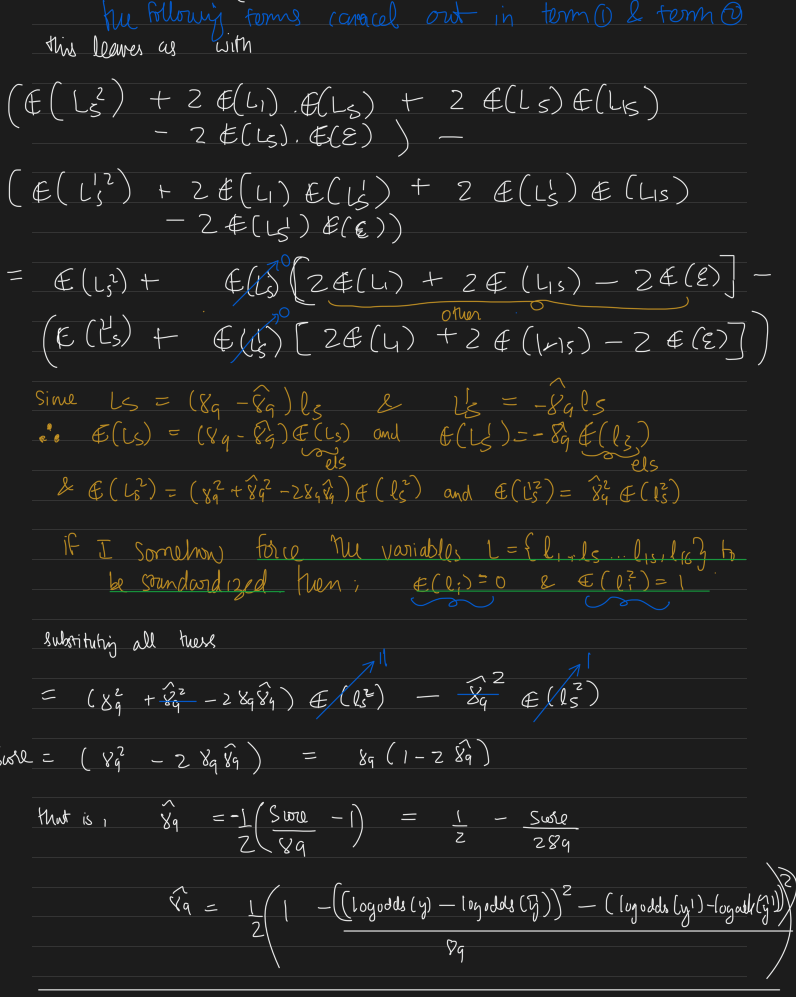 the following terms cancel out in term ① & term ②
this leaves as with
(E(L₅²) + 2 E(L₁) . E(L₅) + 2 E(L₅) E(L₁₅)
− 2 E(L₅) . E(ε) ) −
( E(L₅'²) + 2 E(L₁) E(L₅') + 2 E(L₅') E(L₁₅)
− 2 E(L₅') E(ε))
= E(L₅²) + E(L₅) → 0 [2E(L₁) + 2E(L₁₅) − 2E(ε)] −
other 0
(E(L₅'²) + E(L₅') → 0 [ 2E(L₁) + 2 E(L₁₅) − 2 E(ε)] )
Since L₅ = (γ₉ − γ̂₉) l₅ & L₅' = −γ̂₉ l₅
∴ E(L₅) = (γ₉ − γ̂₉) E(l₅) and E(L₅') = −γ̂₉ E(l₅)
els els
& E(L₅²) = (γ₉² + γ̂₉² − 2γ₉γ̂₉) E(l₅²) and E(L₅'²) = γ̂₉² E(l₅²)
if I somehow force the variables L = {l₁, l₅ ... l₁₅, l₁₆} to
be standardized then ; E(lᵢ) = 0 & E(lᵢ²) = 1
substituting all these
= (γ₉² + γ̂₉² − 2γ₉γ̂₉) E(l₅²) → 1 − γ̂₉² E(l₅²) → 1
Score = ( γ₉² − 2 γ₉γ̂₉ ) = γ₉ ( 1 − 2 γ̂₉ )
that is , γ̂₉ = −1/2 ( Score/γ₉ − 1 ) = 1/2 − Score/2γ₉
γ̂₉ = 1/2 ( 1 − ((logodds(y) − logodds(ŷ))² − (logodds(y') − logodds(ŷ'))²)/γ₉ )